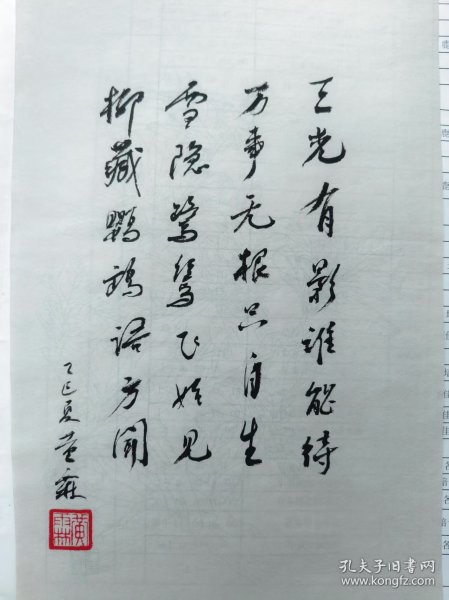 三光有影谁能待
万事无根只自生
雪隐鹭鸶飞始见
柳藏鹦鹉语方闻
乙巳夏黄霖
孔夫子旧书网
www.kongfz.com